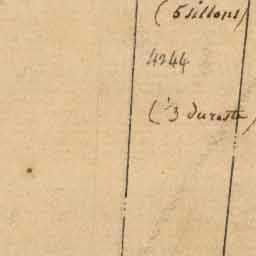 (5 sillons)
4244
(1/3 du reste)